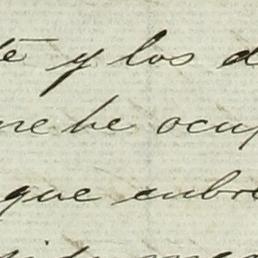 te y los d
me he ocup
que cubre